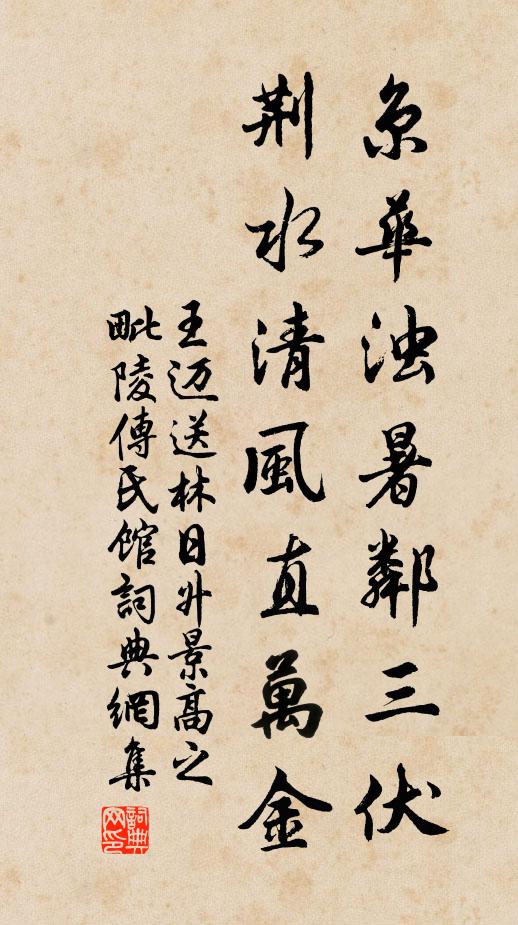 京華浊暑鄰三伏
荆水清風直萬金
王迈送林日升景高之
毗陵傳氏館詞典網集
詞典网印